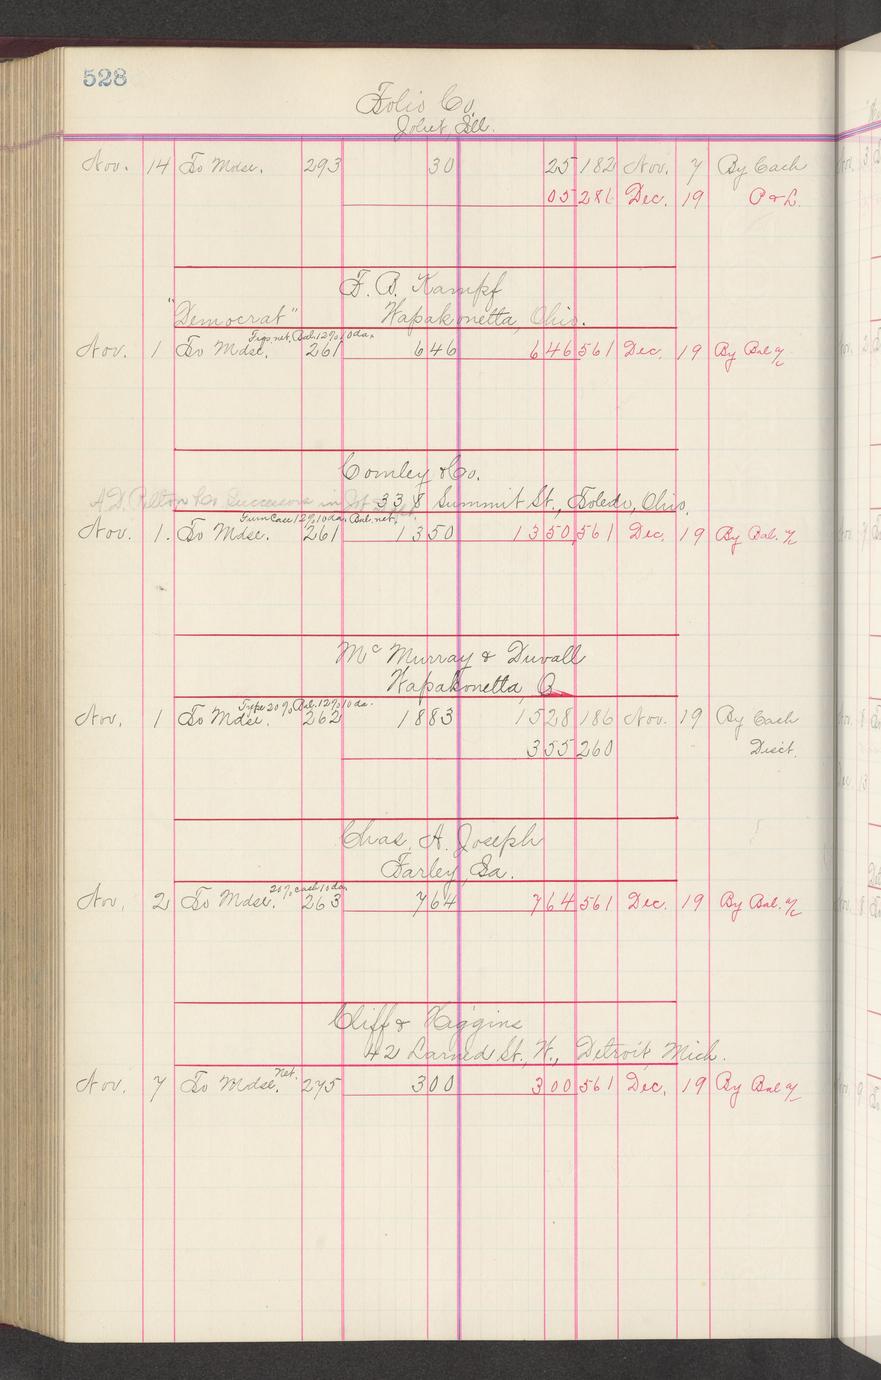 528
Folio Co.
Joliet, Ill.
Nov. 14 To Mdse. 293 30 25 182 Nov. 7 By Cash
05 286 Dec. 19 P & L.
F. B. Kampf
"Democrat" Wapakonetta, Ohio.
Figs net, Bal. 12% 10 da.
Nov. 1 To Mdse. 261 646 646 561 Dec. 19 By Bal a/c
Comley & Co.
Co Successors in 338 Summit St., Toledo, Ohio.
Case 12% 10 da. Bal. net.
Nov. 1. To Mdse. 261 1350 1350 561 Dec. 19 By Bal. a/c
McMurray & Duvall
Wapakonetta, O
Type 20% Bal. 12% 10 da.
Nov. 1 To Mdse. 262 1883 1528 186 Nov. 19 By Cash
355 260 Disct.
Chas. A. Joseph
Farley, Ga.
20% cash 10 da.
Nov. 2 To Mdse. 263 764 764 561 Dec. 19 By Bal. a/c
Cliff & Higgins
42 Larned St., W., Detroit, Mich.
Net.
Nov. 7 To Mdse. 275 300 300 561 Dec. 19 By Bal a/c